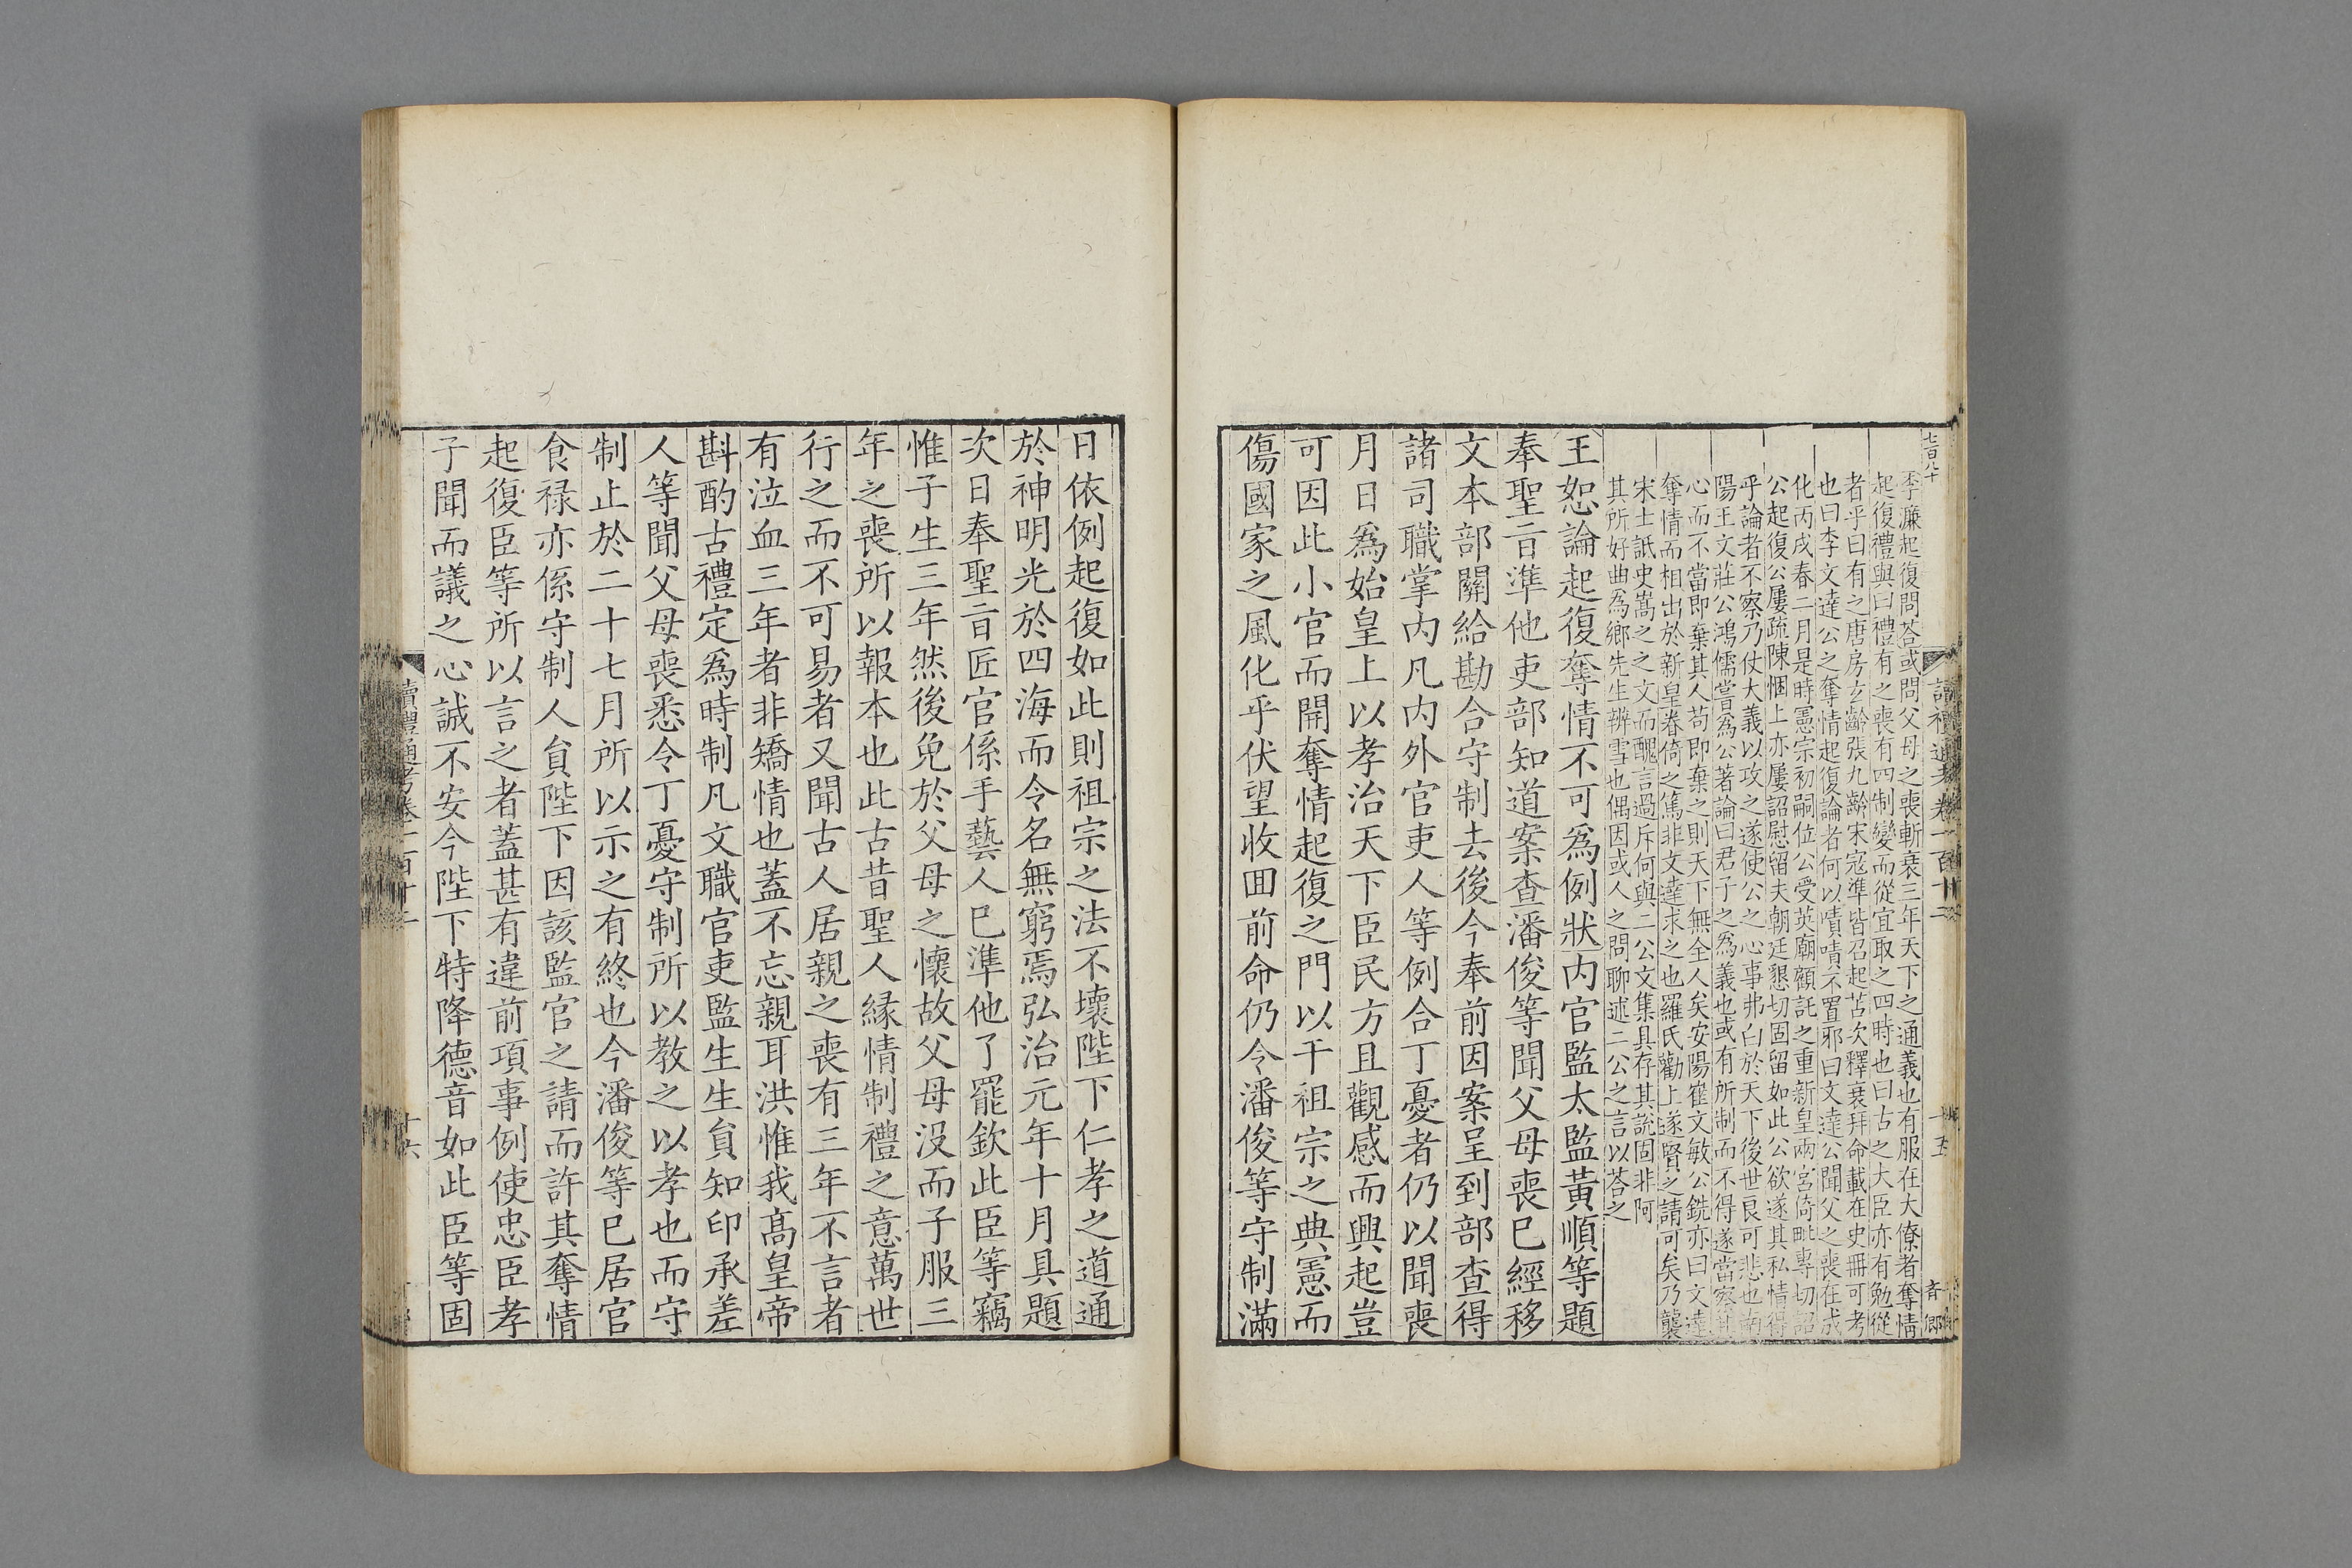 李濂起復問荅或問父母之喪斬衰三年天下之通義也有服在大僚者奪情
起復禮與曰禮有之喪有四制變而從宜取之四時也曰古之大臣亦有勉從
者乎曰有之唐房玄齡張九齡宋寇準皆召起苫次釋衰拜命載在史冊可考
也曰李文達公之奪情起復論者何以嘖嘖不置邪曰文達公聞父之喪在成
化丙戌春二月是時憲宗初嗣位公受英廟顧託之重新皇兩宮倚毗專切詔
公起復公屢疏陳悃上亦屢詔慰留夫朝廷懇切固留如此公欲遂其私情得
乎論者不察乃仗大義以攻之遂使公之心事弗白於天下後世良可悲也南
陽王文莊公鴻儒嘗爲公著論曰君子之爲義也或有所制而不得遂當察其
心而不當即棄其人苟即棄之則天下無全人矣安陽崔文敏公銑亦曰文達
奪情而相出於新皇眷倚之篤非文達求之也羅氏勸上遂賢之請可矣乃襲
宋士詆史嵩之之文而醜言過斥何與二公文集具存其說固非阿
其所好曲爲鄉先生辨雪也偶因或人之問聊述二公之言以荅之
王恕論起復奪情不可爲例狀内官監太監黃順等題
奉聖㫖準他吏部知道案查潘俊等聞父母喪已經移
文本部關給勘合守制去後今奉前因案呈到部查得
諸司職掌内凡内外官吏人等例合丁憂者仍以聞喪
月日爲始皇上以孝治天下臣民方且觀感而興起豈
可因此小官而開奪情起復之門以干祖宗之典憲而
傷國家之風化乎伏望收囬前命仍令潘俊等守制滿
讀禮通考卷一百十二
十五
日依例起復如此則祖宗之法不壞陛下仁孝之道通
於神明光於四海而令名無窮焉弘治元年十月具題
次日奉聖㫖匠官係手藝人已準他了罷欽此臣等竊
惟子生三年然後免於父母之懷故父母没而子服三
年之喪所以報本也此古昔聖人緣情制禮之意萬世
行之而不可易者又聞古人居親之喪有三年不言者
有泣血三年者非矯情也蓋不忘親耳洪惟我高皇帝
斟酌古禮定爲時制凡文職官吏監生生員知印承差
人等聞父母喪悉令丁憂守制所以教之以孝也而守
制止於二十七月所以示之有終也今潘俊等已居官
食祿亦係守制人員陛下因該監官之請而許其奪情
起復臣等所以言之者蓋甚有違前項事例使忠臣孝
子聞而議之心誠不安今陛下特降德音如此臣等固
讀禮通考卷一百十二
十六